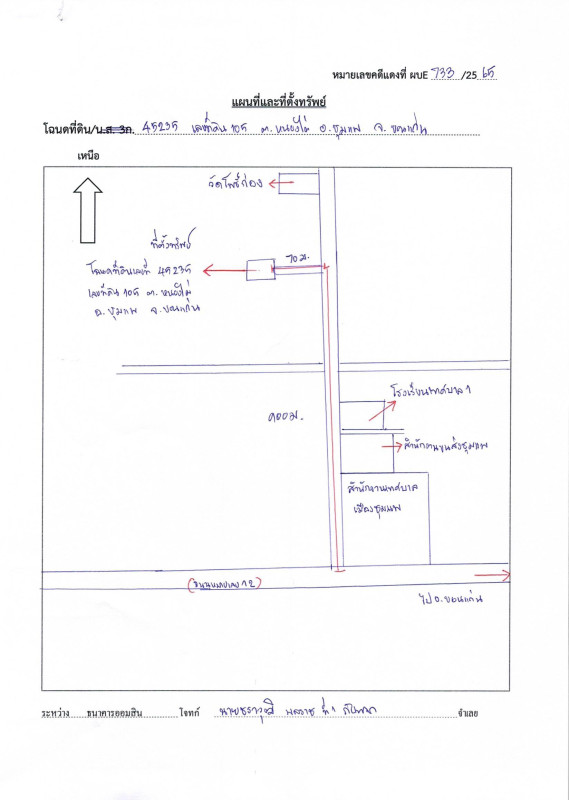 หมายเลขคดีแดงที่ ผบE 733 /25 65
แผนที่และที่ตั้งทรัพย์
โฉนดที่ดิน/น.ส. 3ก. 45235 เลขที่ดิน 105 ต.หนองไผ่ อ.ชุมแพ จ.ขอนแก่น
เหนือ
วัดโพธิ์ก่อง
ที่ตั้งทรัพย์
70 ม.
โฉนดที่ดินเลขที่ 45235
เลขที่ดิน 105 ต.หนองไผ่
อ.ชุมแพ จ.ขอนแก่น
โรงเรียนเทศบาล 1
900 ม.
สำนักงานขนส่งชุมแพ
สำนักงานเทศบาล
เมืองชุมแพ
(ถนนหมายเลข 12)
ไป อ.ขอนแก่น
ระหว่าง ธนาคารออมสิน โจทก์ นายชราวุฒิ ที่ 1 จำเลย